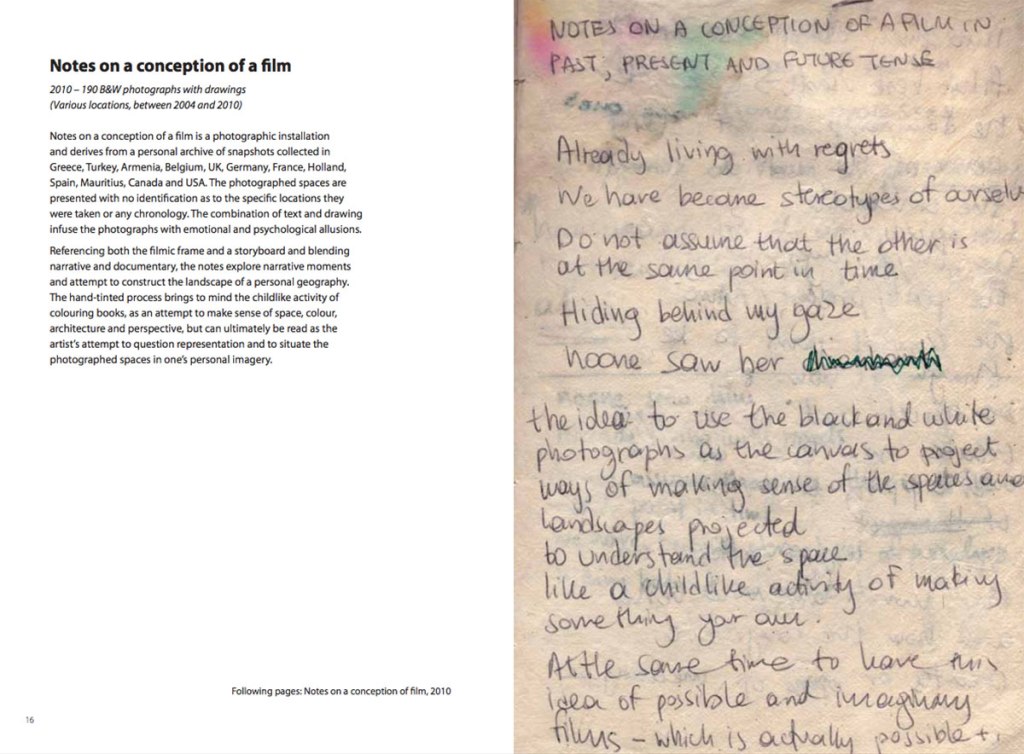 Notes on a conception of a film
2010 – 190 B&W photographs with drawings
(Various locations, between 2004 and 2010)
Notes on a conception of a film is a photographic installation
and derives from a personal archive of snapshots collected in
Greece, Turkey, Armenia, Belgium, UK, Germany, France, Holland,
Spain, Mauritius, Canada and USA. The photographed spaces are
presented with no identification as to the specific locations they
were taken or any chronology. The combination of text and drawing
infuse the photographs with emotional and psychological allusions.
Referencing both the filmic frame and a storyboard and blending
narrative and documentary, the notes explore narrative moments
and attempt to construct the landscape of a personal geography.
The hand-tinted process brings to mind the childlike activity of
colouring books, as an attempt to make sense of space, colour,
architecture and perspective, but can ultimately be read as the
artist's attempt to question representation and to situate the
photographed spaces in one's personal imagery.
Following pages: Notes on a conception of film, 2010
16
NOTES ON A CONCEPTION OF A FILM IN
PAST, PRESENT AND FUTURE TENSE
Already living with regrets
We have become stereotypes of ourselv
Do not assume that the other is
at the same point in time
Hiding behind my gaze
noone saw her
the idea to use the black and white
photographs as the canvas to project
ways of making sense of the spaces and
landscapes projected
to understand the space
like a childlike activity of making
something your own.
At the same time to have this
idea of possible and imaginary
films – which is actually possible +